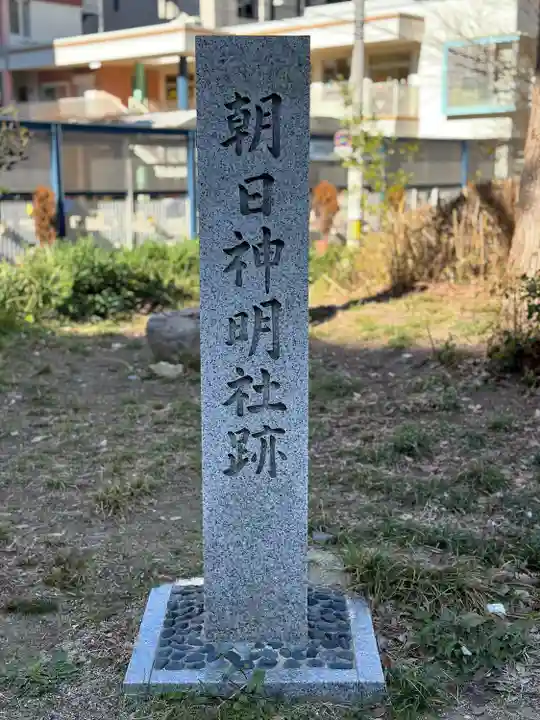 朝日神明社跡